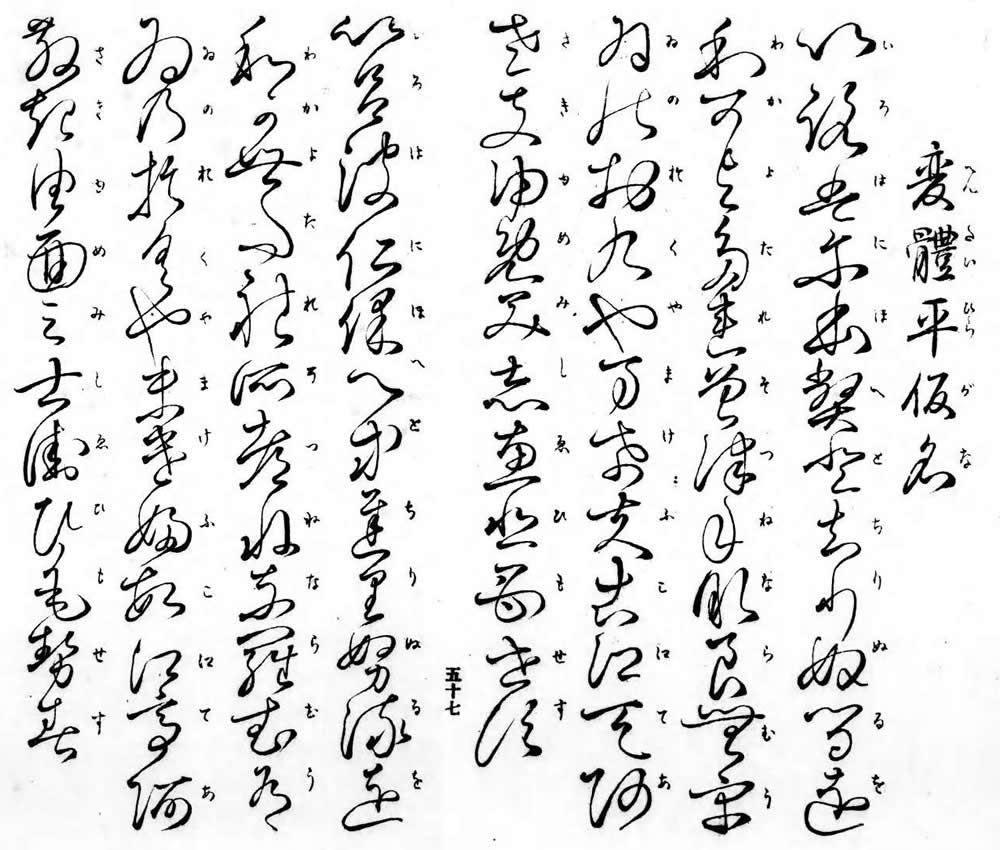 変體平仮名
へんたいひらがな
いろはにほへとちりぬるを
わかよたれそつねならむう
ゐのおくやまけふこえてあ
さきゆめみしゑひもせす
五十七
いろはにほへとちりぬるを
わかよたれそつねならむう
ゐのおくやまけふこえてあ
さきゆめみしゑひもせす